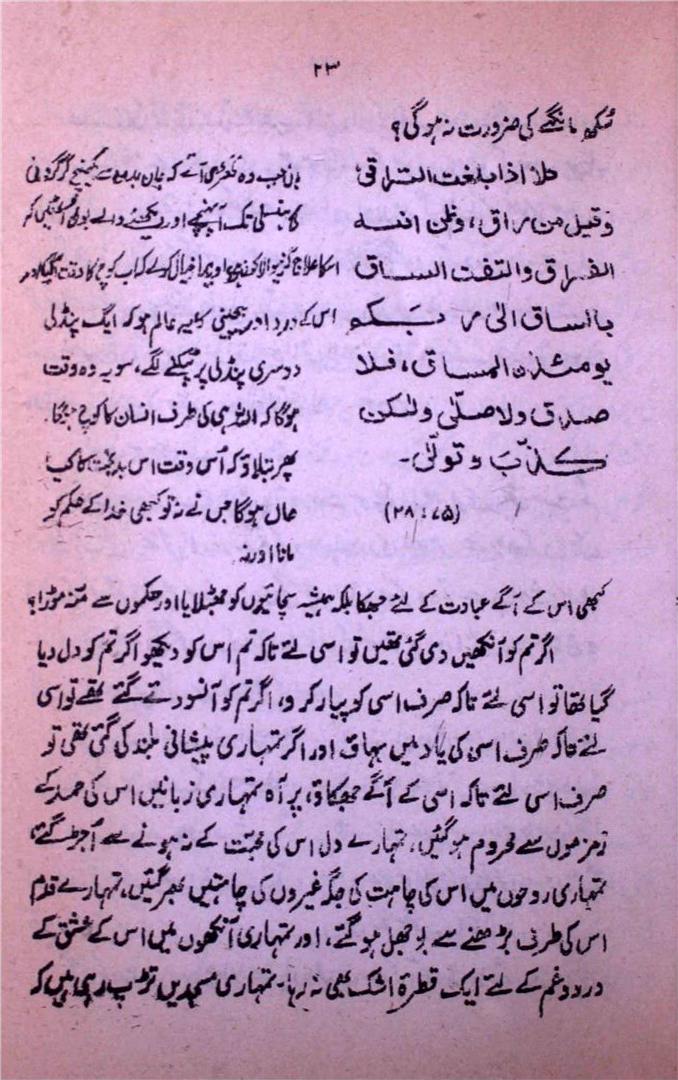 ۲۳
سُکھ مانگنے کی ضرورت نہ ہوگی؟
کلا اذا بلغت التراقی
وقیل من راق، وظن انہ
الفراق والتفت الساق
بالساق الیٰ ربکم
یومئذن المساق، فلا
صدق ولا صلّی ولکن
کذّب وتولّیٰ۔
(۷۵ : ۲۸)
ہاں جب وہ گھڑی آئے کہ جان بدن سے کھنچ کر گردن
کی ہنسلی تک آ پہنچے اور دیکھنے والے بول اٹھیں کہ
اس کا علاج کرنیوالا کون ہے اور پورا خیال کر لے کہ اب کوچ کا وقت آگیا اور
اس کے درد اور بیچینی کا یہ عالم ہو کہ ایک پنڈلی
دوسری پنڈلی پر پٹکنے لگے، سو یہ وہ وقت
ہوگا کہ اللہ ہی کی طرف انسان کا کوچ ہوگا۔
پھر بتلاؤ کہ اُس وقت اس بدبخت کا کیا
حال ہوگا جس نے نہ تو کبھی خدا کے حکم کو
مانا اور نہ
کبھی اس کے آگے عبادت کے لئے جھکا بلکہ ہمیشہ سچائیوں کو جھٹلایا اور حکموں سے منہ موڑا؟
اگر تم کو آنکھیں دی گئی تھیں تو اسی لئے تاکہ تم اس کو دیکھو اگر تم کو دل دیا
گیا تھا تو اسی لئے تاکہ صرف اسی کو پیار کرو، اگر تم کو آنسو دئے گئے تھے تو اسی
لئے تاکہ صرف اسی کی یاد میں بہاؤ اور اگر تمہاری پیشانی بلند کی گئی تھی تو
صرف اسی لئے تاکہ اسی کے آگے جھکاؤ، پر آہ تمہاری زبانیں اس کی حمد کے
زمزموں سے محروم ہو گئیں، تمہارے دل اس کی محبت کے نہ ہونے سے اُجڑ گئے
تمہاری روحوں میں اس کی چاہت کی جگہ غیروں کی چاہتیں بھر گئیں، تمہارے قدم
اس کی طرف بڑھنے سے بوجھل ہو گئے، اور تمہاری آنکھوں میں اس کے عشق کے
درد و غم کے لئے ایک قطرۂ اشک بھی نہ رہا۔ تمہاری مسجدیں تڑپ رہی ہیں کہ